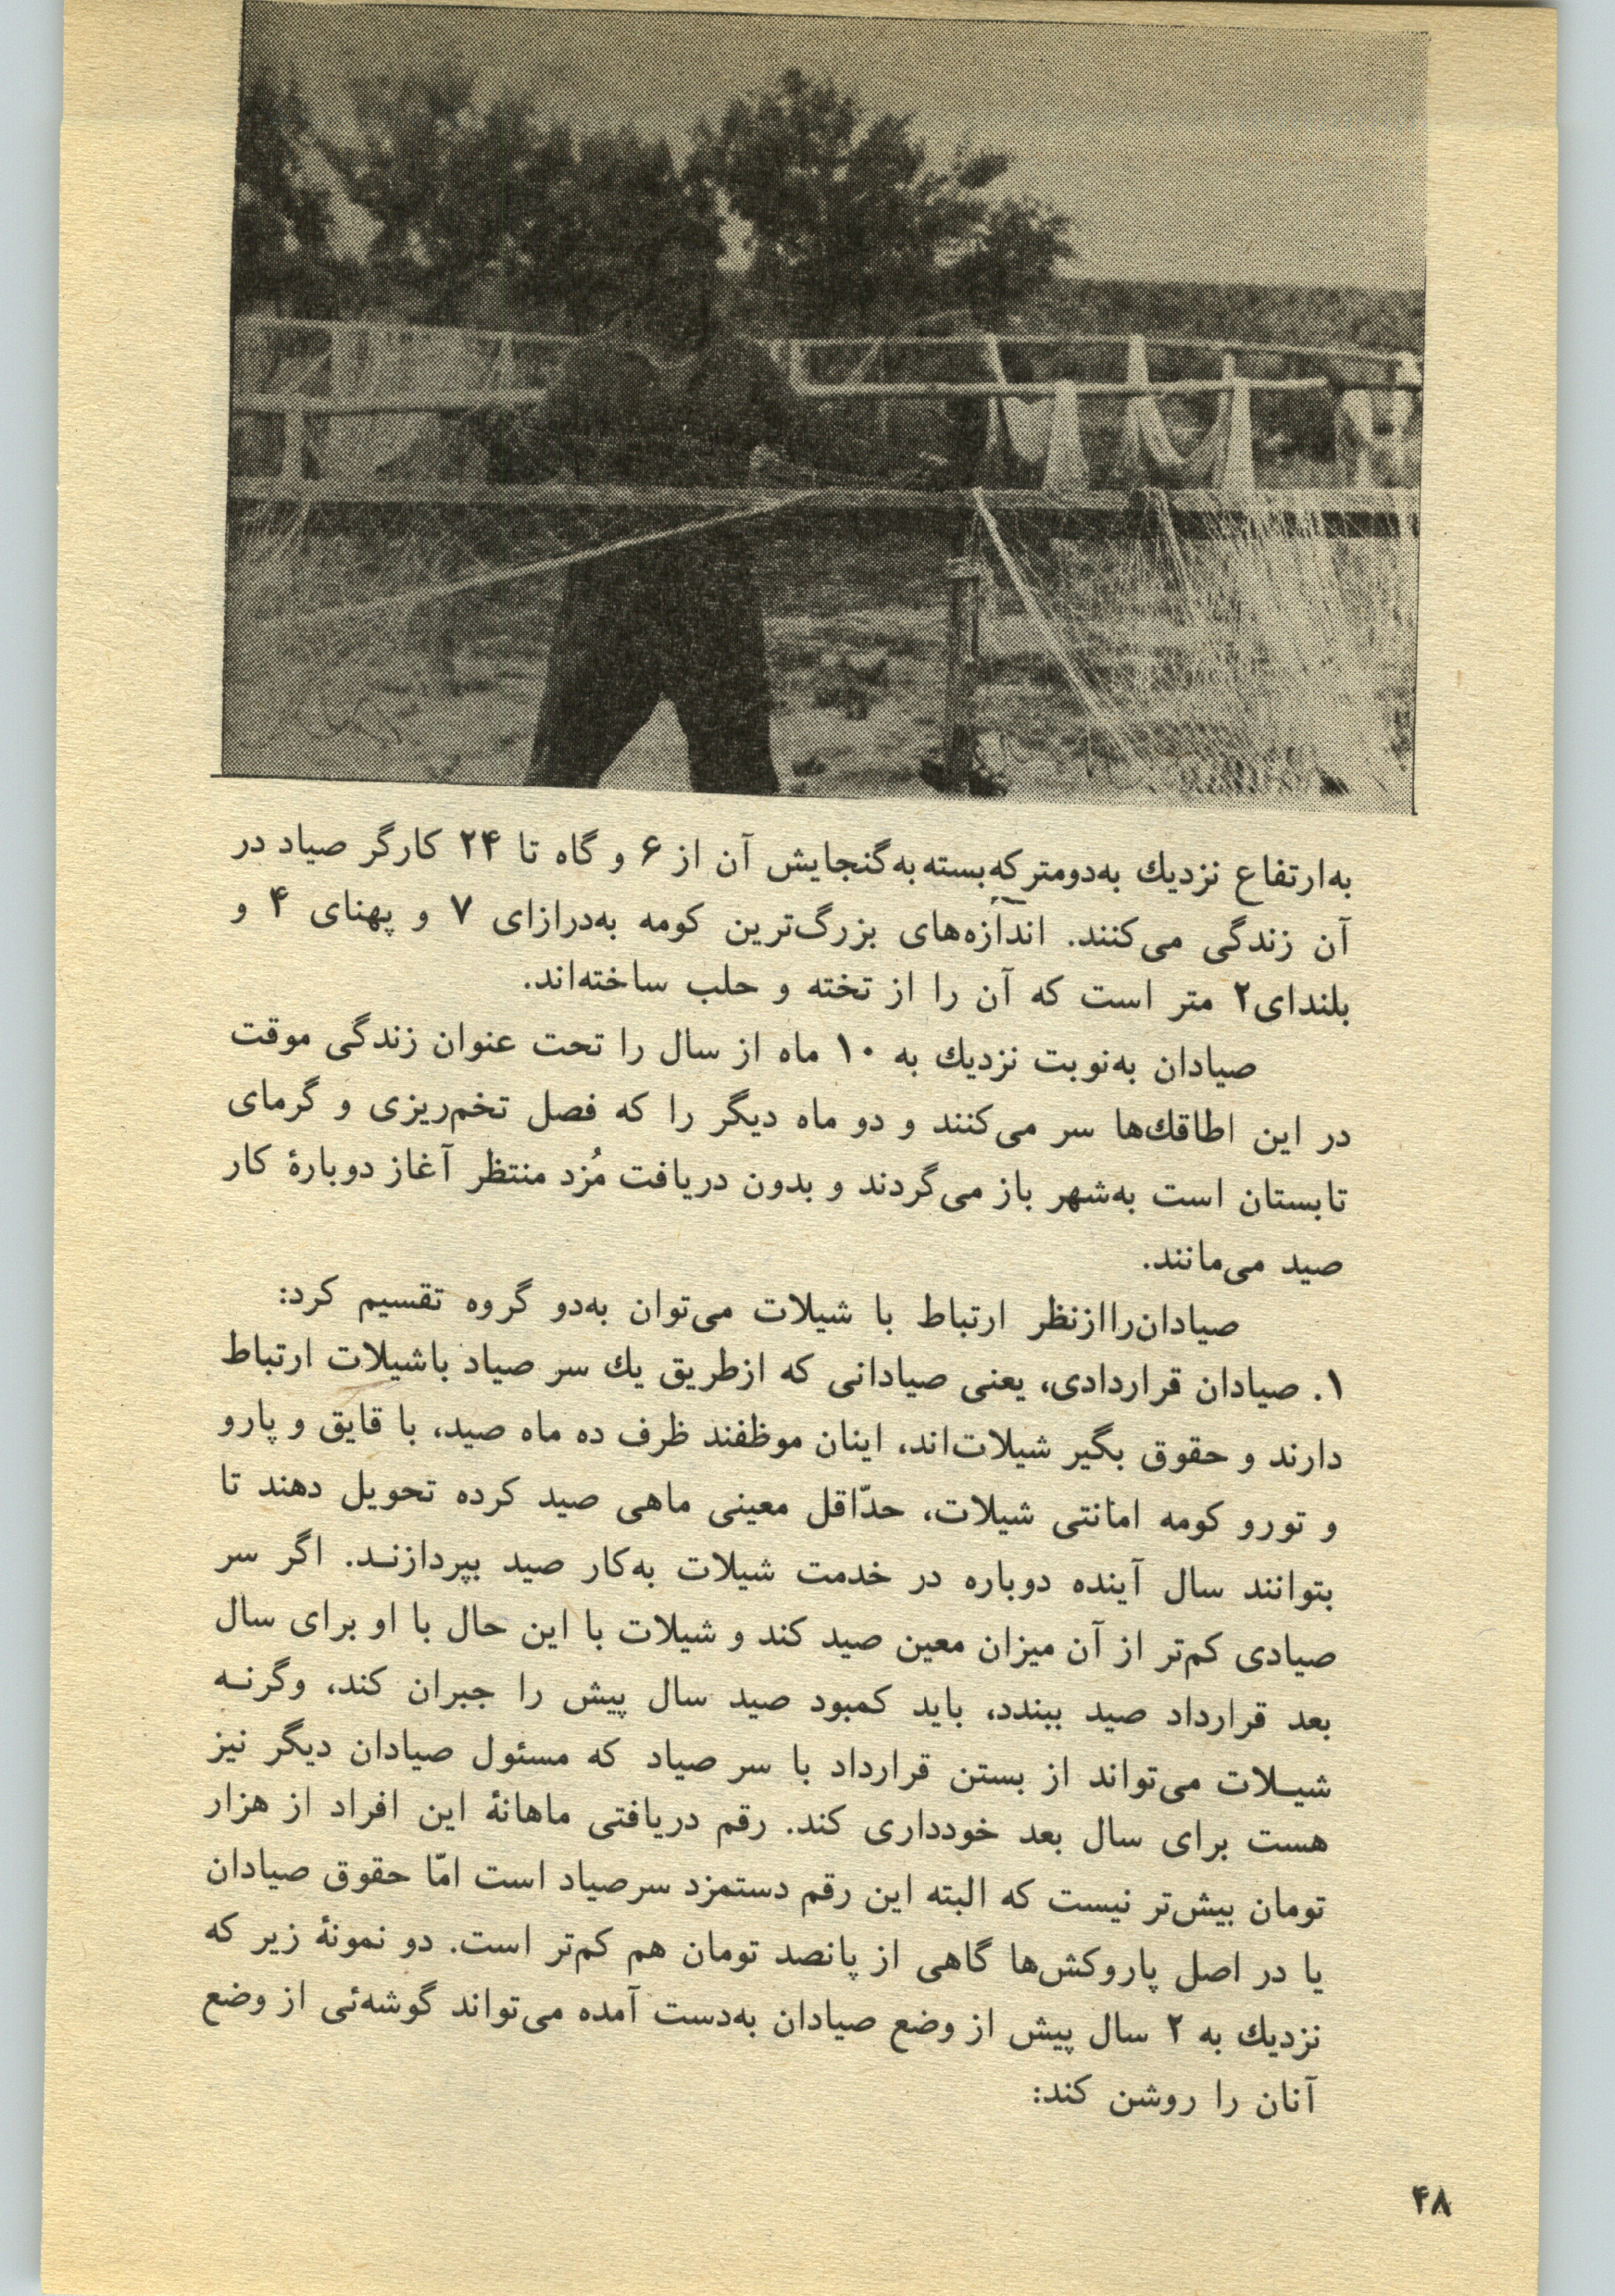 به‌ارتفاع نزدیك به‌دومترکه‌بسته‌به‌گنجایش آن از ۶ و گاه تا ۲۴ کارگر صیاد در
آن زندگی می‌کنند. اندازه‌های بزرگ‌ترین کومه به‌درازای ۷ و پهنای ۴ و
بلندای۲ متر است که آن را از تخته و حلب ساخته‌اند.
صیادان به‌نوبت نزدیك به ۱۰ ماه از سال را تحت عنوان زندگی موقت
در این اطاقك‌ها سر می‌کنند و دو ماه دیگر را که فصل تخم‌ریزی و گرمای
تابستان است به‌شهر باز می‌گردند و بدون دریافت مُزد منتظر آغاز دوبارهٔ کار
صید می‌مانند.
صیادان‌راازنظر ارتباط با شیلات می‌توان به‌دو گروه تقسیم کرد:
۱. صیادان قراردادی، یعنی صیادانی که ازطریق یك سر صیاد باشیلات ارتباط
دارند و حقوق بگیر شیلات‌اند، اینان موظفند ظرف ده ماه صید، با قایق و پارو
و تورو کومه امانتی شیلات، حدّاقل معینی ماهی صید کرده تحویل دهند تا
بتوانند سال آینده دوباره در خدمت شیلات به‌کار صید بپردازنـد. اگر سر
صیادی کم‌تر از آن میزان معین صید کند و شیلات با این حال با او برای سال
بعد قرارداد صید ببندد، باید کمبود صید سال پیش را جبران کند، وگرنـه
شیـلات می‌تواند از بستن قرارداد با سر صیاد که مسئول صیادان دیگر نیز
هست برای سال بعد خودداری کند. رقم دریافتی ماهانهٔ این افراد از هزار
تومان بیش‌تر نیست که البته این رقم دستمزد سرصیاد است امّا حقوق صیادان
یا در اصل پاروکش‌ها گاهی از پانصد تومان هم کم‌تر است. دو نمونهٔ زیر که
نزدیك به ۲ سال پیش از وضع صیادان به‌دست آمده می‌تواند گوشه‌ئی از وضع
آنان را روشن کند:
۴۸